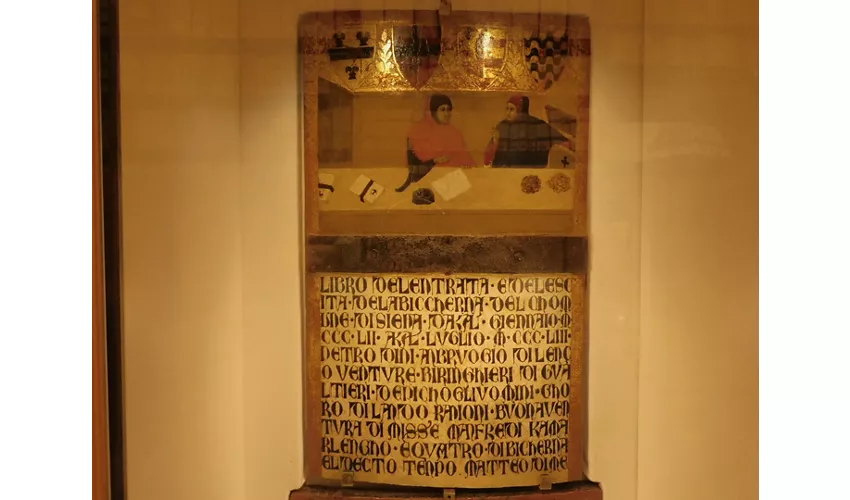 LIBRO DELENTRATA · E DELESC
ITA · DELABICCHERNA · DEL CHOM
UNE · DI SIENA · DAKAL · GIENNAIO · M
CCC · LII · KAL · LUGLIO · M · CCC · LIII ·
PETRO DINI · ANBRUOGIO DI LENÇ
O VENTURE · BIRINGHIERI DI GUA
LTIERI · DE PICHOGLIVOMINI · GHO
RO DI LANDO RANIONI · BUONAVEN
TURA DI MISSE MANFREDI KAMA
RLENGHO · E QUATRO · DI BICHERNA
EL DECTO TENPO · MATTEO DI ME